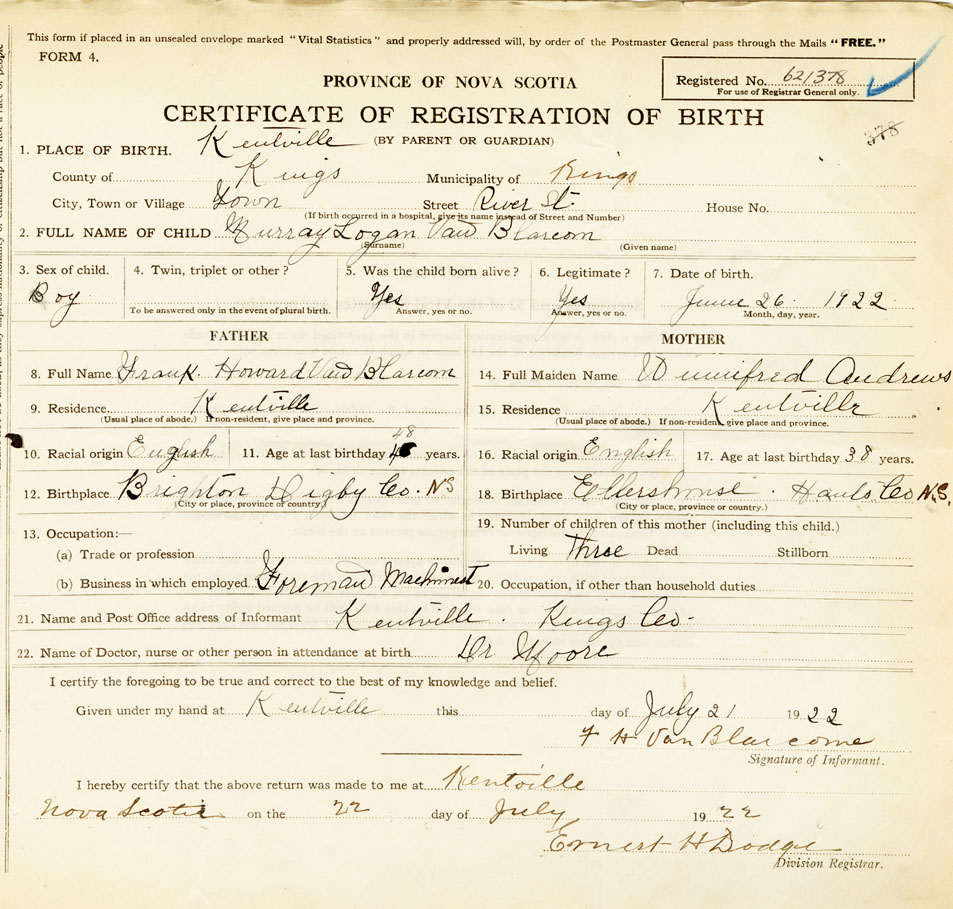 This form if placed in an unsealed envelope marked "Vital Statistics" and properly addressed will, by order of the Postmaster General pass through the Mails "FREE."
FORM 4.
PROVINCE OF NOVA SCOTIA
Registered No. 621378
For use of Registrar General only.
CERTIFICATE OF REGISTRATION OF BIRTH
378
1. PLACE OF BIRTH. Kentville (BY PARENT OR GUARDIAN)
County of Kings Municipality of Kings
City, Town or Village Town Street River St. House No.
(If birth occurred in a hospital, give its name instead of Street and Number)
2. FULL NAME OF CHILD Murray Logan Van Blarcom
(Surname) (Given name)
3. Sex of child. 4. Twin, triplet or other? 5. Was the child born alive? 6. Legitimate? 7. Date of birth.
Boy Yes Yes June 26 1922
To be answered only in the event of plural birth. Answer, yes or no. Answer, yes or no. Month, day, year.
FATHER MOTHER
8. Full Name Frank Howard Van Blarcom 14. Full Maiden Name Winnifred Andrews
9. Residence Kentville 15. Residence Kentville
(Usual place of abode.) If non-resident, give place and province. (Usual place of abode.) If non-resident, give place and province.
10. Racial origin English 11. Age at last birthday 48 years. 16. Racial origin English 17. Age at last birthday 38 years.
12. Birthplace Brighton Digby Co. NS 18. Birthplace Ellershouse. Hants Co N.S.
(City or place, province or country.) (City or place, province or country.)
13. Occupation:— 19. Number of children of this mother (including this child.)
(a) Trade or profession Living Three Dead Stillborn
(b) Business in which employed Foreman Machinest 20. Occupation, if other than household duties
21. Name and Post Office address of Informant Kentville. Kings Co.
22. Name of Doctor, nurse or other person in attendance at birth Dr Moore
I certify the foregoing to be true and correct to the best of my knowledge and belief.
Given under my hand at Kentville this day of July 21 1922
F H Van Blarcome
Signature of Informant.
I hereby certify that the above return was made to me at Kentville
Nova Scotia on the 22 day of July 1922
Ernest H Dodge
Division Registrar.